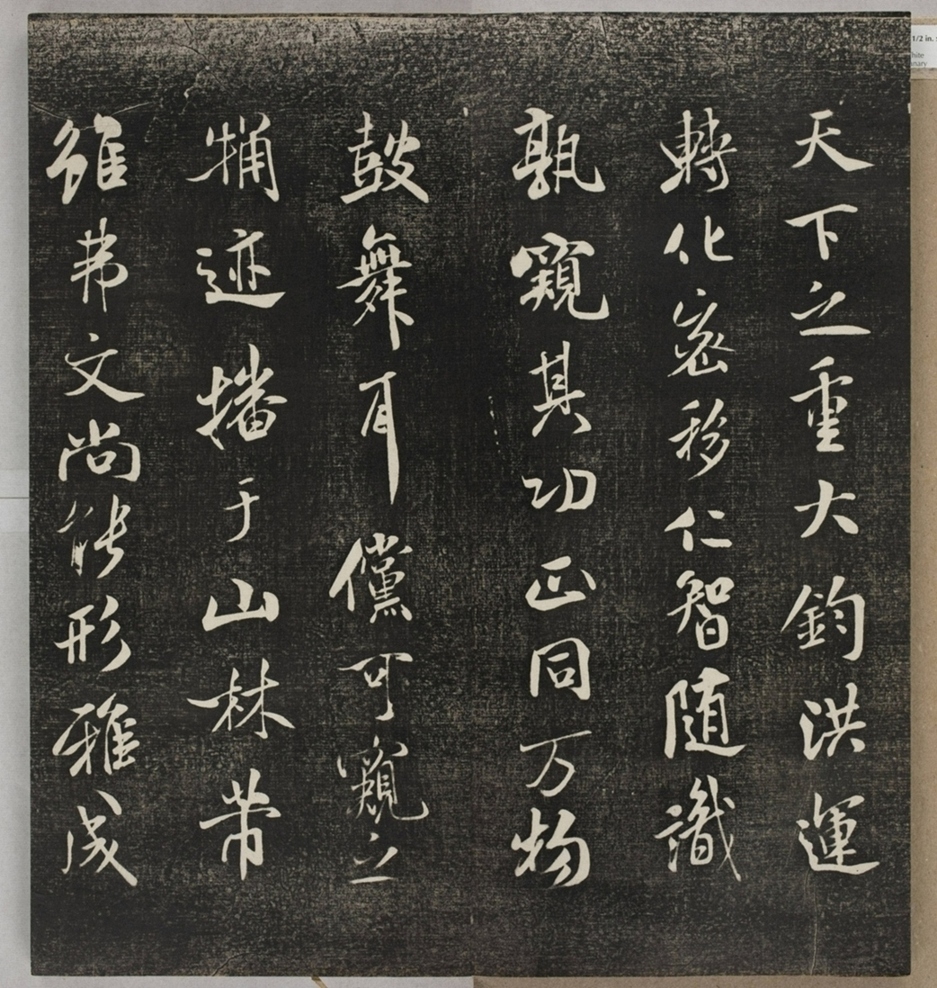 天下之重大鈞洪運
轉化密移仁智隨識
孰窺其功正同万物
鼓舞耳儻可窺之
觕迹播于山林芾
雖弗文尚能形雅成
1/2 in.